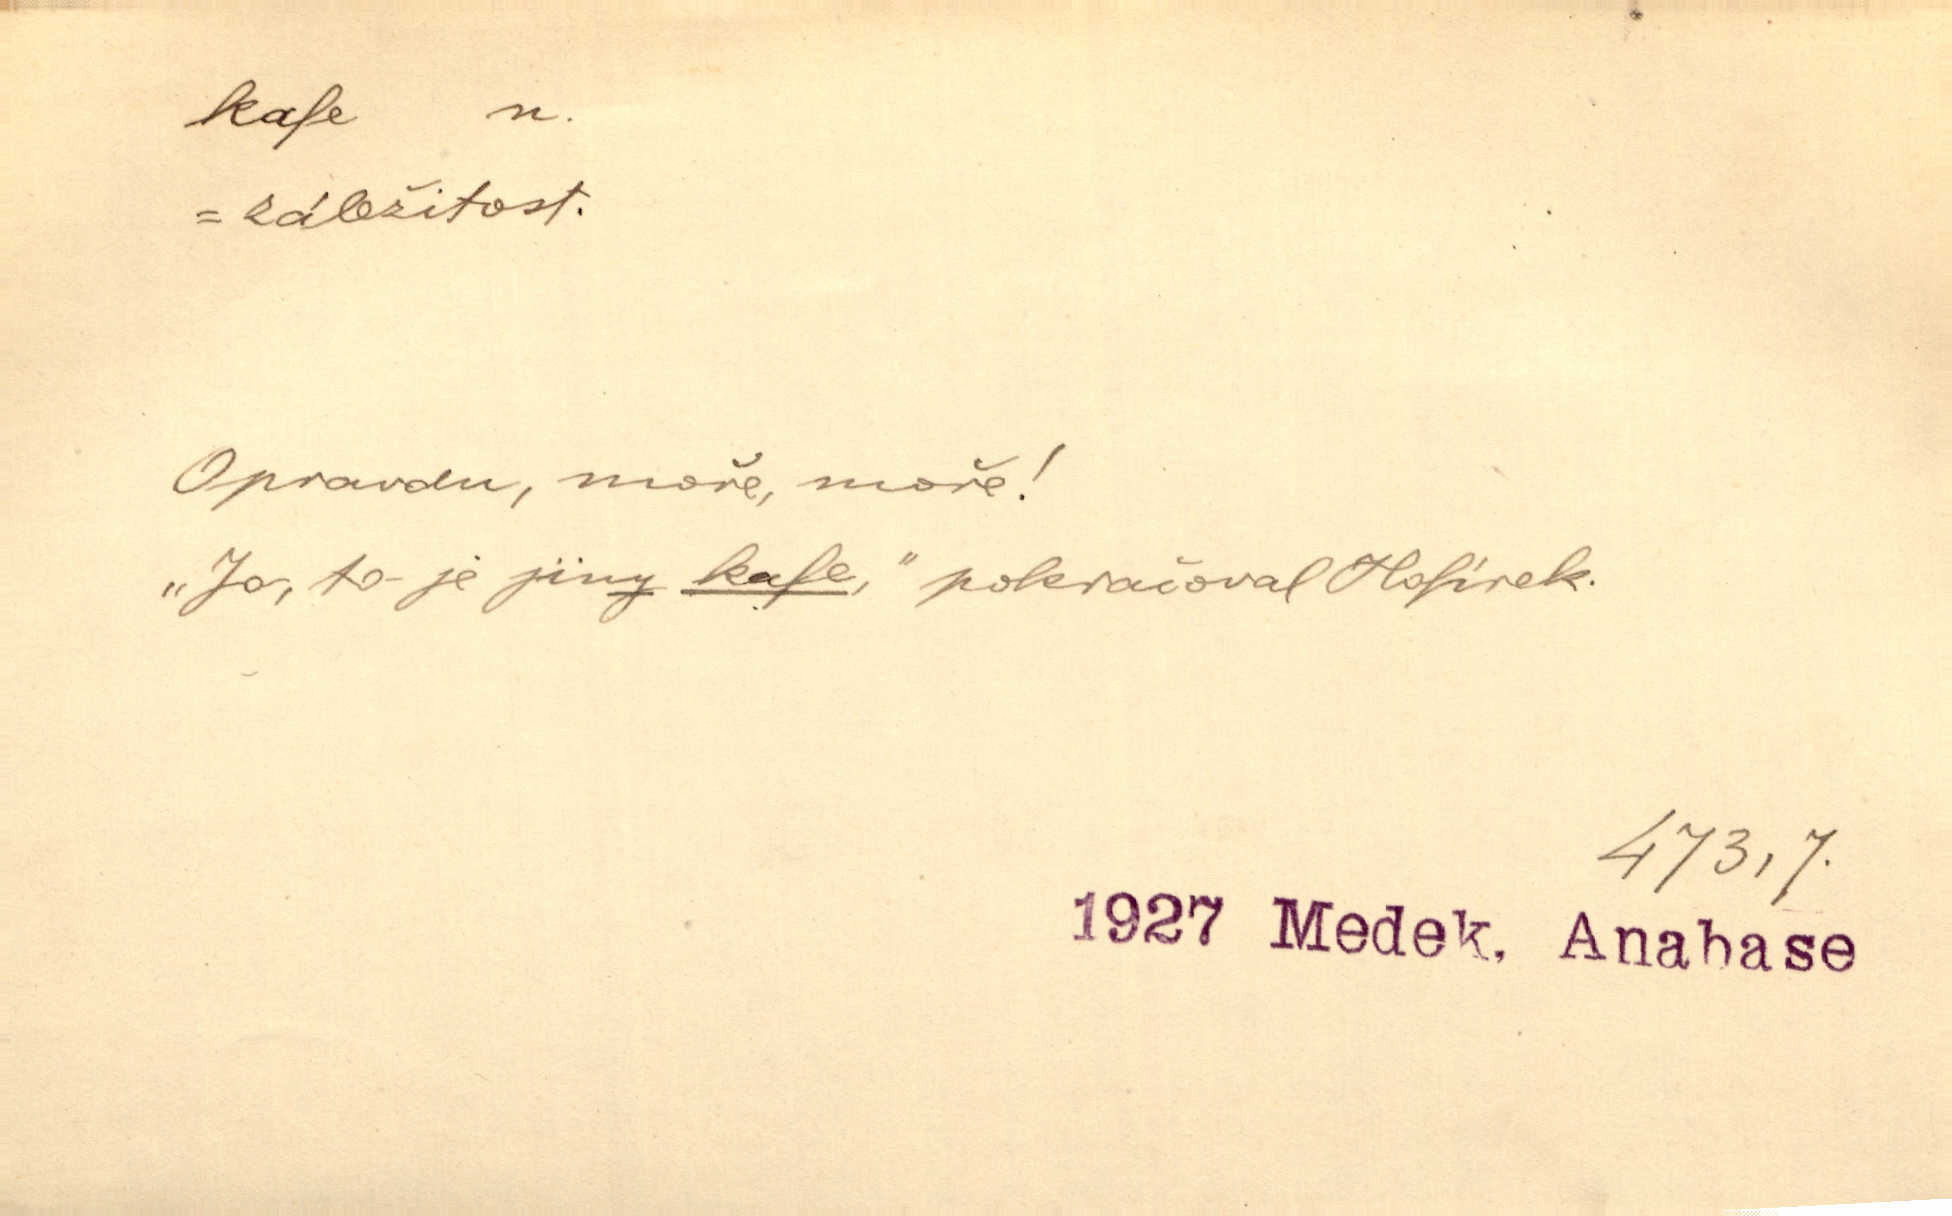 kafe n.
= záležitost.
Opravdu, moře, moře!
„Jo, to je jiny kafe,“ pokračoval Hofírek.
473,7.
1927 Medek, Anabase